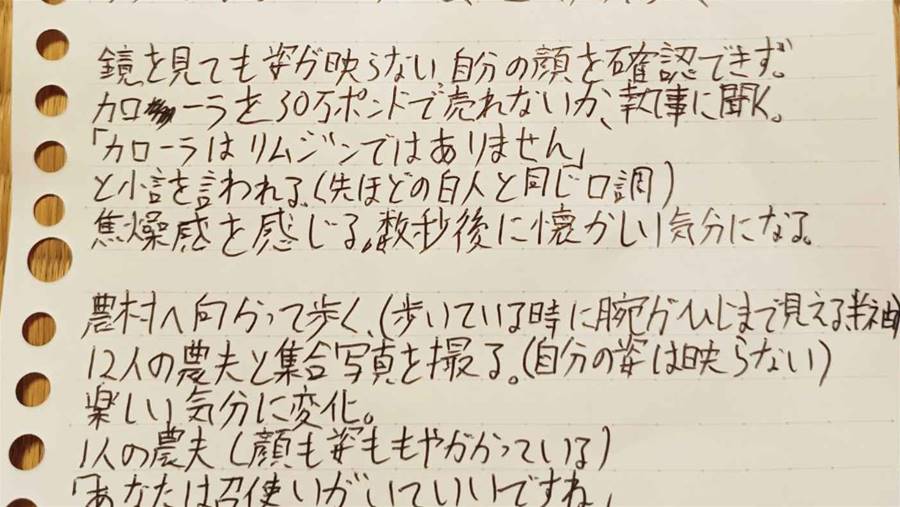 鏡を見ても姿が映らない 自分の顔を確認できず。
カローラを30万ポンドで売れないか、執事に聞く。
「カローラはリムジンではありません」
と小言を言われる。(先ほどの白人と同じ口調)
焦燥感を感じる。数秒後に懐かしい気分になる。
農村へ向かって歩く、(歩いている時に腕がひじまで見える、半袖)
12人の農夫と集合写真を撮る。(自分の姿は映らない)
楽しい気分に変化。
1人の農夫(顔も姿ももやがかかっている)
「あなたは召使いがいていいですね」